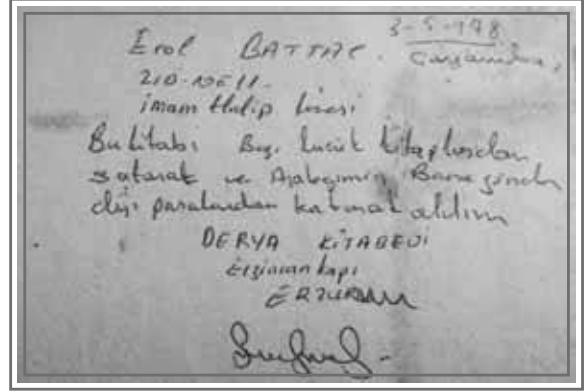 3-5-978
Erol BATTAL. Çarşamba,
210-NO
imam Hatip lisesi
Bu kitabı Bazı küçük kitaplardan
satarak ve Ağabeyimin Bana gönder
diği paralardan katarak aldım
DERYA KİTABEVİ
Erzincan kapı
ERZURUM